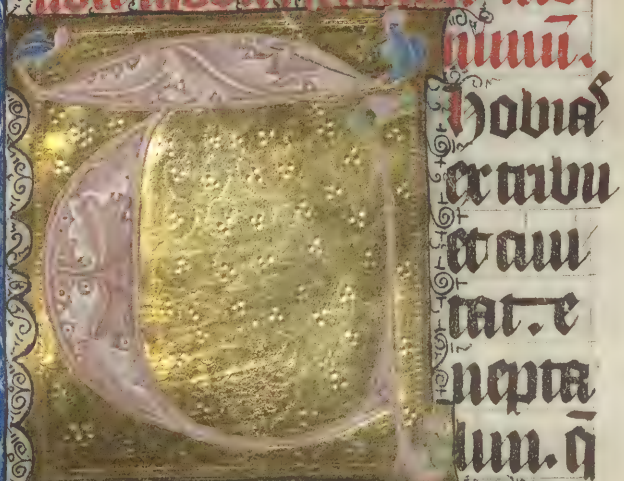 Thobias
ex tribu
et ciui
tat.e
nepta
lim. q̄